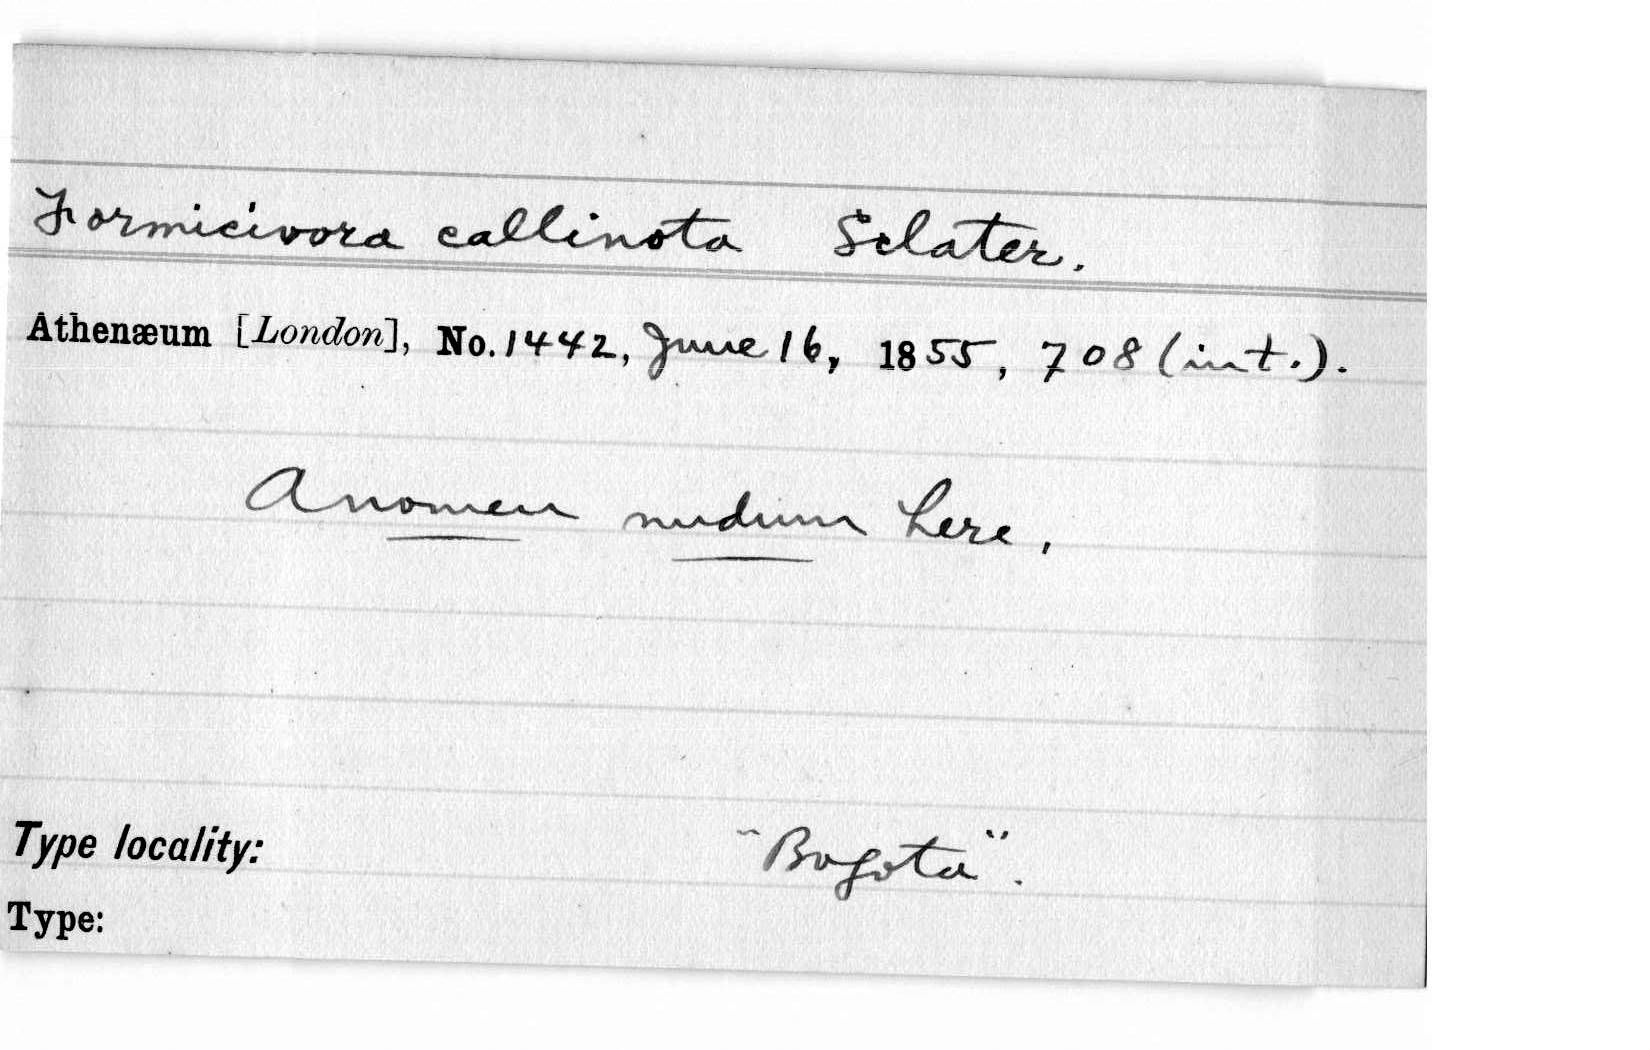 Formicivora callinota Sclater.
Athenæum [London], No. 1442, June 16, 1855, 708 (int.).
A nomen nudum here.
Type locality: "Bogota".
Type: